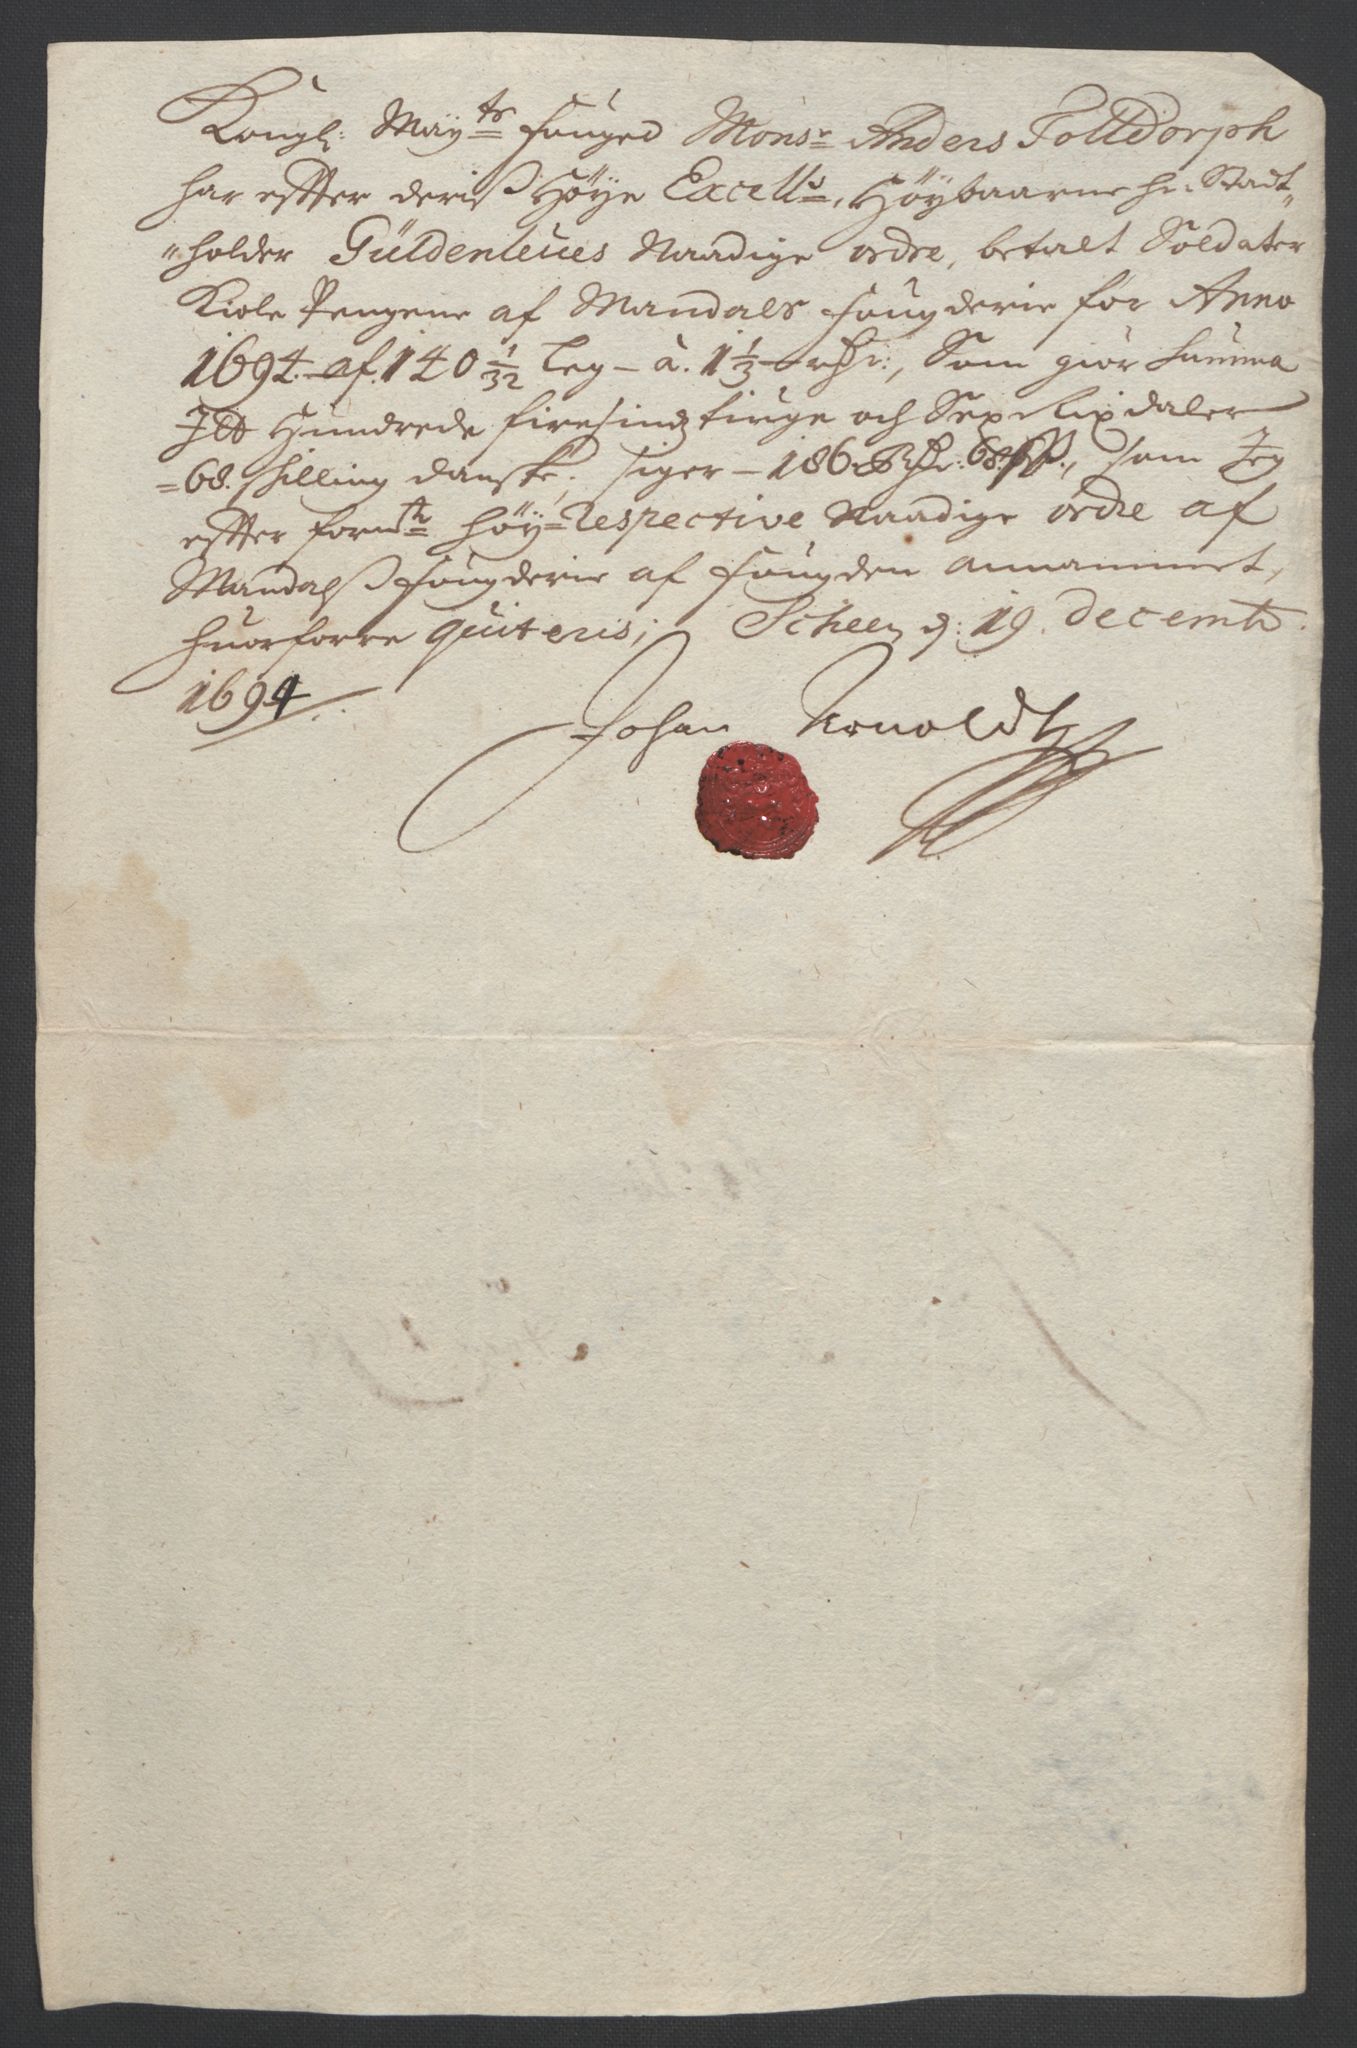 Kongl: May^ts fouged Mons^r Anders Tolldorph
har effter deriß Höÿe Excell^s, Höÿbaarne hr: Stadt„
„holder Güldenleues Naadige ordre, betalt Soldater
Kiole Pengene af Mandals fougderie for Anno
1694. af. 140 1/32 Leg – a. 1 1/3 – rdr:, Som giør Summa
Itt Hundrede firesindztiuge och Sex Rixdaler
=68. skilling danske; siger – 186 Rdr: 68 ß., som Jeg
effter form^te höÿ=respective Naadige ordre af
Mandalß fougderie af fougden annammet,
huorforre quiteris; Scheen d: 19. decemb:
1694
Johan Arnoldt